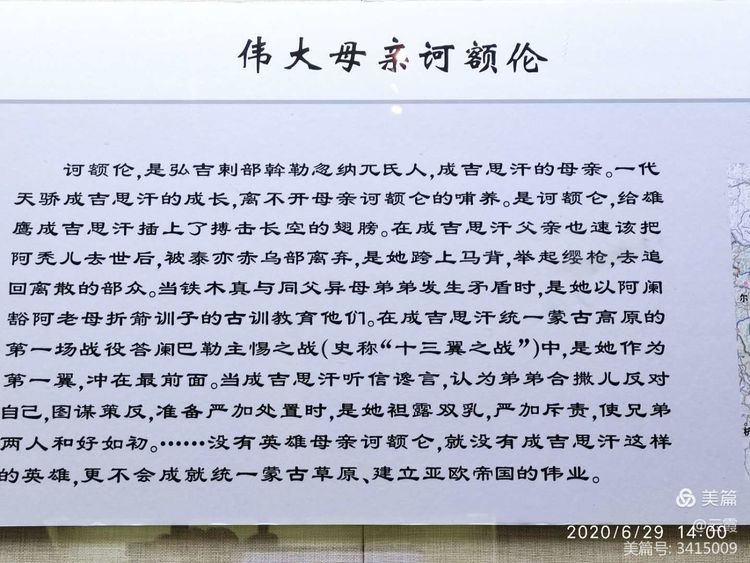 伟大母亲诃额伦
诃额伦,是弘吉剌部斡勒忽纳兀氏人,成吉思汗的母亲。一代
天骄成吉思汗的成长,离不开母亲诃额仑的哺养。是诃额仑,给雄
鹰成吉思汗插上了搏击长空的翅膀。在成吉思汗父亲也速该把
阿秃儿去世后,被泰亦赤乌部离弃,是她跨上马背,举起缨枪,去追
回离散的部众。当铁木真与同父异母弟弟发生矛盾时,是她以阿阑
豁阿老母折箭训子的古训教育他们。在成吉思汗统一蒙古高原的
第一场战役答阑巴勒主惕之战(史称“十三翼之战”)中,是她作为
第一翼,冲在最前面。当成吉思汗听信谗言,认为弟弟合撒儿反对
自己,图谋策反,准备严加处置时,是她袒露双乳,严加斥责,使兄弟
两人和好如初。……没有英雄母亲诃额仑,就没有成吉思汗这样
的英雄,更不会成就统一蒙古草原、建立亚欧帝国的伟业。
美篇
@云霞
2020/6/29 14:00
美篇号: 3415009